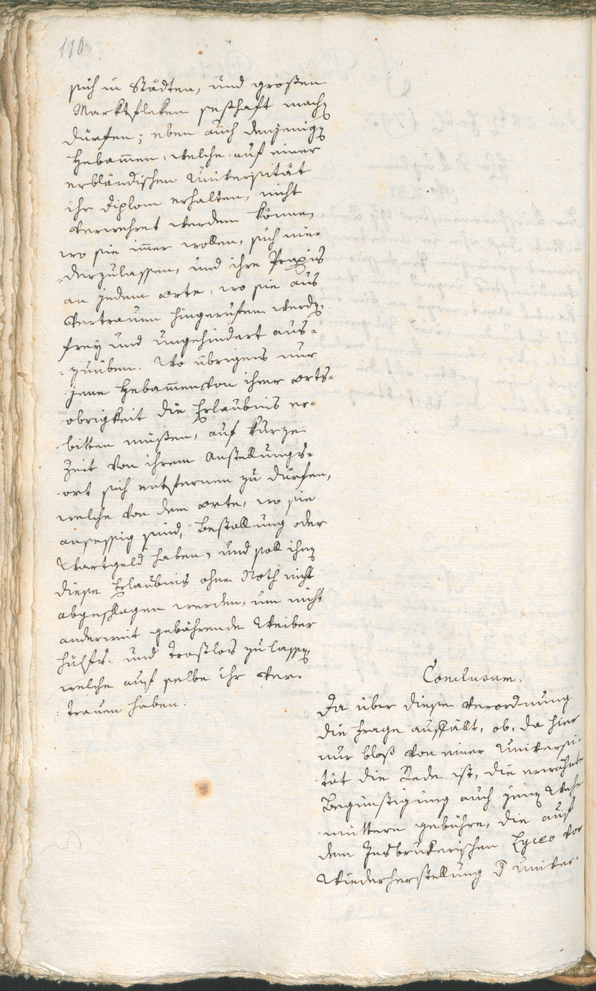 110.
sich in Städten, und großen
Marktfleken seßhaft mach̄
dürfen; eben auch denjeniḡ
Hebam̄en, welche auf einer
erbländischen Universität
ihr Diplom erhalten, nicht
verwehret werden könne,
wo sie im̄er wollen, sich nie-
derzulassen, und ihre Praxis
an jedem Orte, wo sie aus
Vertrauen hingerufen werd̄,
frey und ungehindert aus-
zuüben. Wo übrigens nur
jene Hebam̄en von ihrer Orts-
obrigkeit die Erlaubnis er-
bitten müßen, auf kurze
Zeit von ihrem Anstellungs-
ort sich entfernen zu dürfen,
welche von dem Orte, wo sie
ansessig sind, Bestallung oder
Wartgeld haben, und soll ihn̄
diese Erlaubnis ohne Noth nicht
abgeschlagen werden, um nicht
anderweit gebährende Weiber
hülfs- und trostlos zu lass̄
welche auf selbe ihr Ver-
trauen haben.
Conclusum.
Da über diese Verordnung
die Frage auffällt, ob, da hier
nur bloß von einer Universi-
tät die Rede ist, die erwähnte
Begünstigung auch jen̄ Wehe-
müttern gebühre, die auf
dem Insbrukerischen Lyceo vor
Wiederherstellung d Univer-